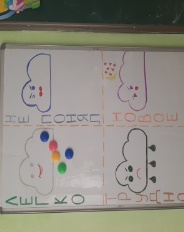 НЕ ПОНЯЛ
НОВОЕ
ЛЕГКО
ТРУДНО